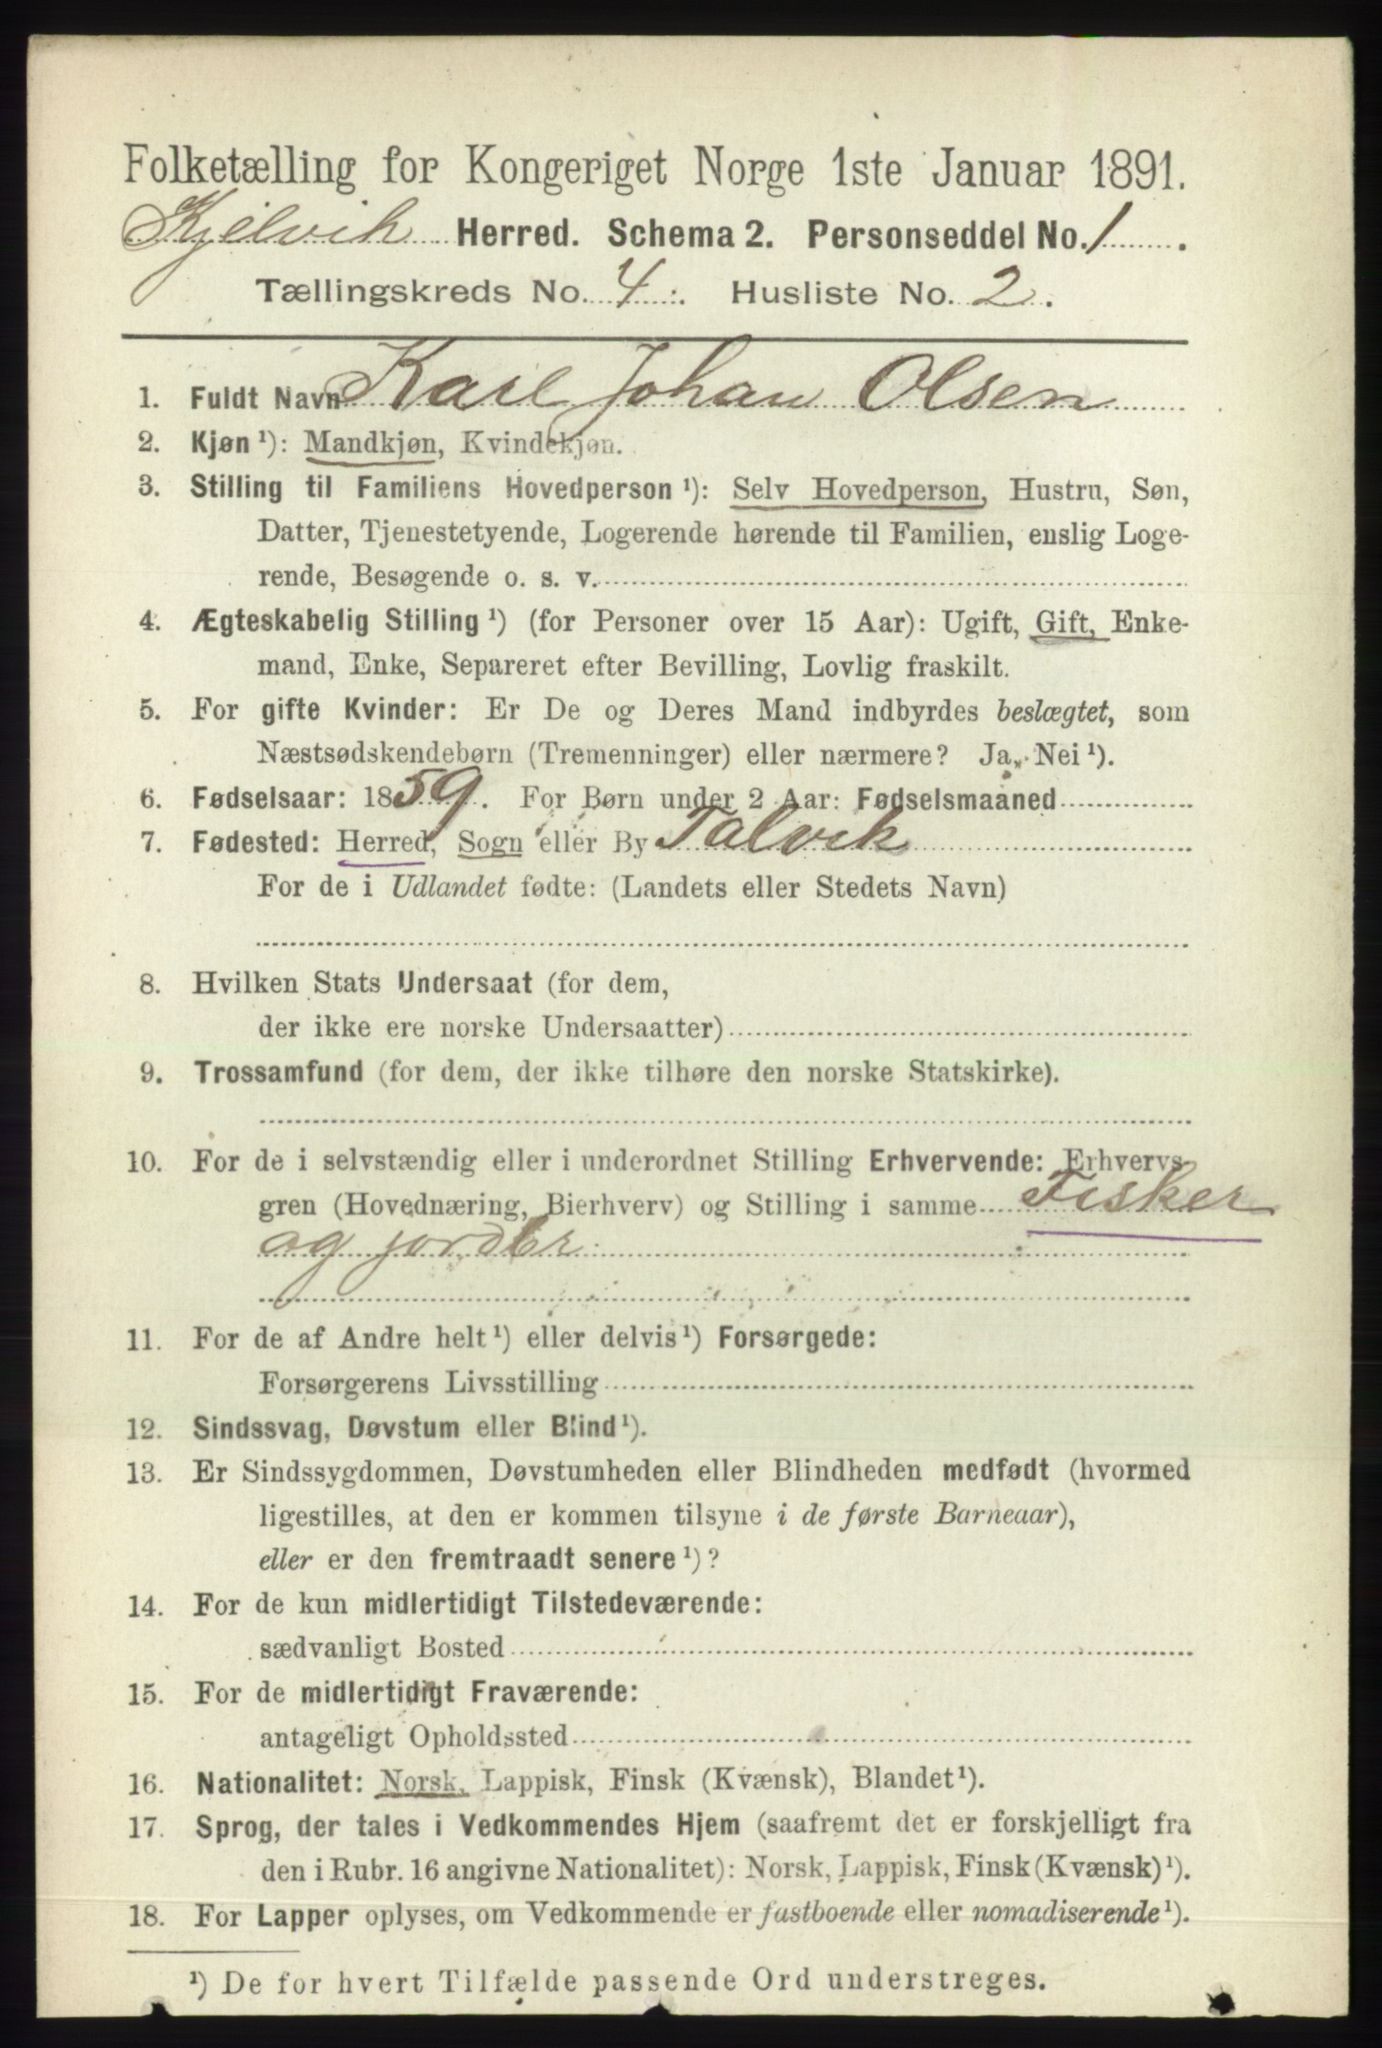 Folketælling for Kongeriget Norge 1ste Januar 1891.
Kjelvik Herred. Schema 2. Personseddel No. 1.
Tællingskreds No. 4. Husliste No. 2.
1. Fuldt Navn Karl Johan Olsen
2. Kjøn ¹): Mandkjøn, Kvindekjøn.
3. Stilling til Familiens Hovedperson ¹): Selv Hovedperson, Hustru, Søn,
Datter, Tjenestetyende, Logerende hørende til Familien, enslig Loge-
rende, Besøgende o. s. v.
4. Ægteskabelig Stilling ¹) (for Personer over 15 Aar): Ugift, Gift, Enke-
mand, Enke, Separeret efter Bevilling, Lovlig fraskilt.
5. For gifte Kvinder: Er De og Deres Mand indbyrdes beslægtet, som
Næstsødskendebørn (Tremenninger) eller nærmere? Ja, Nei ¹).
6. Fødselsaar: 1859. For Børn under 2 Aar: Fødselsmaaned
7. Fødested: Herred, Sogn eller By Talvik
For de i Udlandet fødte: (Landets eller Stedets Navn)
8. Hvilken Stats Undersaat (for dem,
der ikke ere norske Undersaatter)
9. Trossamfund (for dem, der ikke tilhøre den norske Statskirke).
10. For de i selvstændig eller i underordnet Stilling Erhvervende: Erhvervs-
gren (Hovednæring, Bierhverv) og Stilling i samme Fisker
og jordbr
11. For de af Andre helt ¹) eller delvis ¹) Forsørgede:
Forsørgerens Livsstilling
12. Sindssvag, Døvstum eller Blind ¹).
13. Er Sindssygdommen, Døvstumheden eller Blindheden medfødt (hvormed
ligestilles, at den er kommen tilsyne i de første Barneaar),
eller er den fremtraadt senere ¹)?
14. For de kun midlertidigt Tilstedeværende:
sædvanligt Bosted
15. For de midlertidigt Fraværende:
antageligt Opholdssted
16. Nationalitet: Norsk, Lappisk, Finsk (Kvænsk), Blandet ¹).
17. Sprog, der tales i Vedkommendes Hjem (saafremt det er forskjelligt fra
den i Rubr. 16 angivne Nationalitet): Norsk, Lappisk, Finsk (Kvænsk) ¹).
18. For Lapper oplyses, om Vedkommende er fastboende eller nomadiserende ¹).
¹) De for hvert Tilfælde passende Ord understreges.